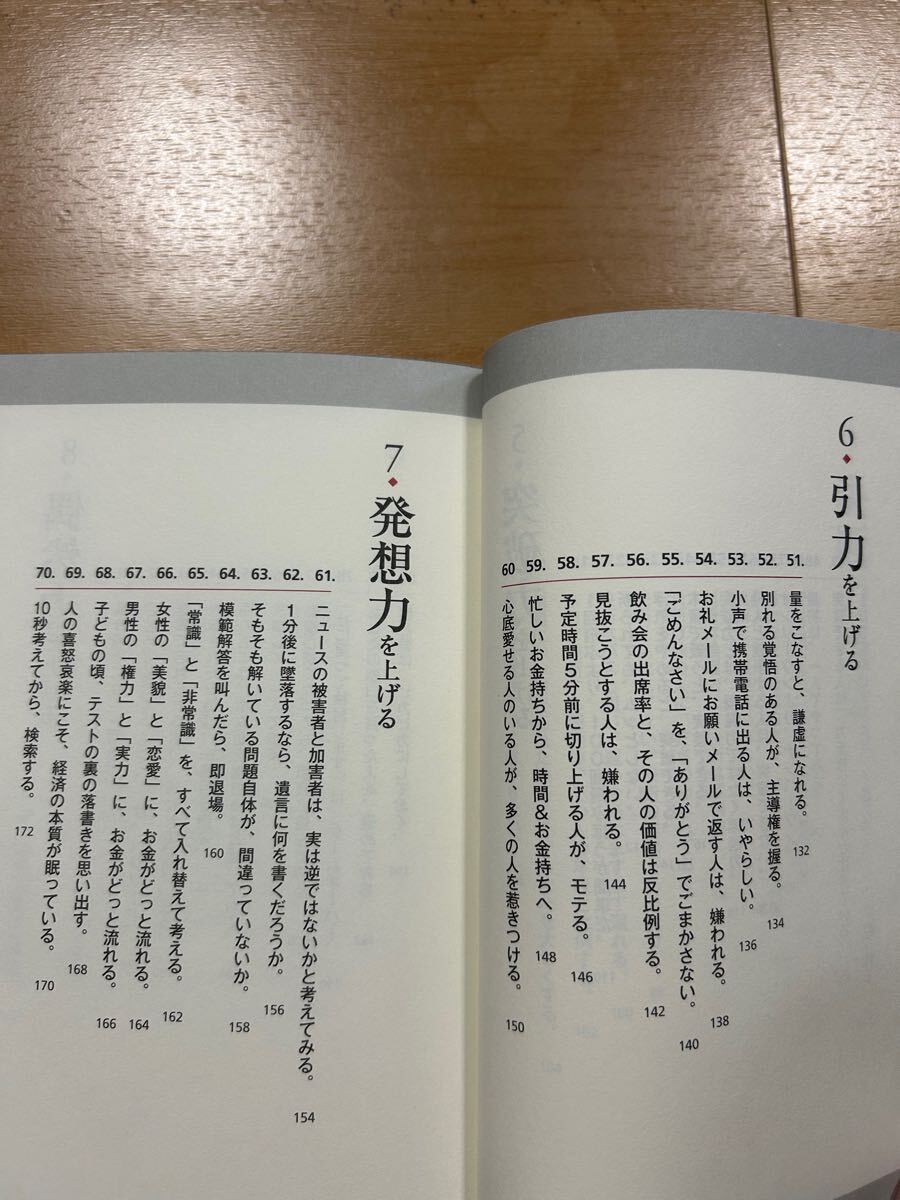 6◆引力を上げる
51. 量をこなすと、謙虚になれる。 132
52. 別れる覚悟のある人が、主導権を握る。 134
53. 小声で携帯電話に出る人は、いやらしい。 136
54. お礼メールにお願いメールで返す人は、嫌われる。 138
55. 「ごめんなさい」を、「ありがとう」でごまかさない。 140
56. 飲み会の出席率と、その人の価値は反比例する。 142
57. 見抜こうとする人は、嫌われる。 144
58. 予定時間5分前に切り上げる人が、モテる。 146
59. 忙しいお金持ちから、時間&お金持ちへ。 148
60 心底愛せる人のいる人が、多くの人を惹きつける。 150
7◆発想力を上げる
61. ニュースの被害者と加害者は、実は逆ではないかと考えてみる。 154
62. 1分後に墜落するなら、遺言に何を書くだろうか。 156
63. そもそも解いている問題自体が、間違っていないか。 158
64. 模範解答を叫んだら、即退場。 160
65. 「常識」と「非常識」を、すべて入れ替えて考える。 162
66. 女性の「美貌」と「恋愛」に、お金がどっと流れる。 164
67. 男性の「権力」と「実力」に、お金がどっと流れる。 166
68. 子どもの頃、テストの裏の落書きを思い出す。 168
69. 人の喜怒哀楽にこそ、経済の本質が眠っている。 170
70. 10秒考えてから、検索する。 172